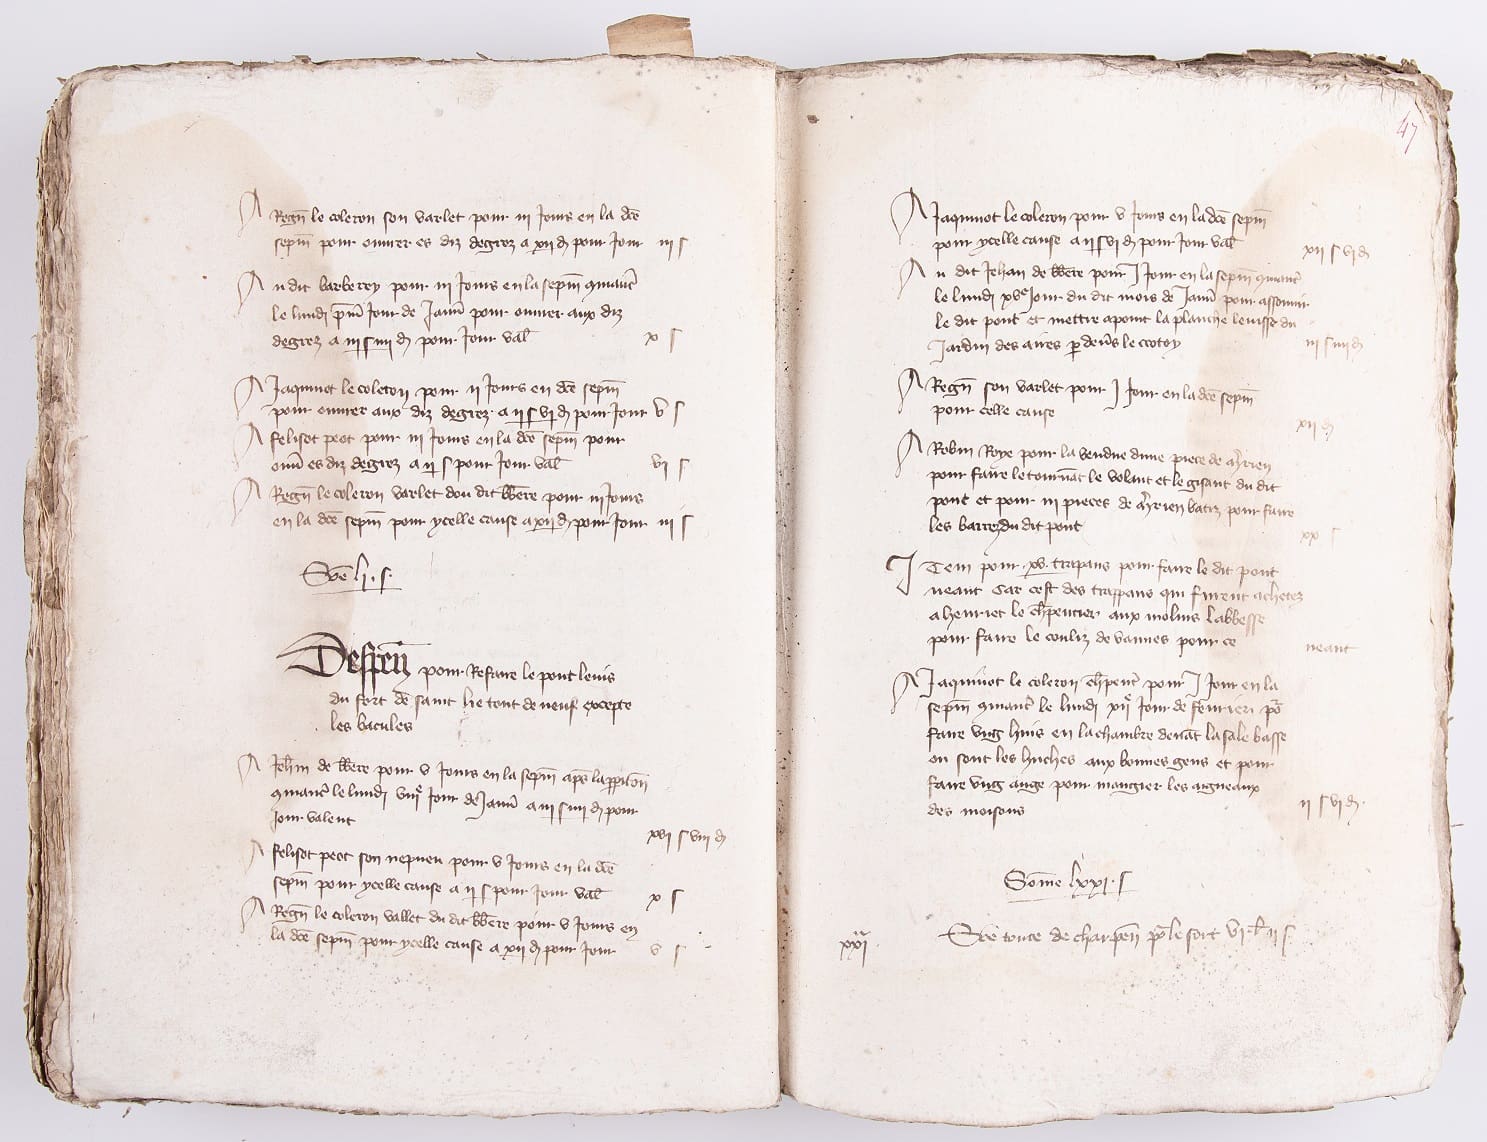 A Regn̄ le coleron son varlet pour iii jours en la dc̄e
sepm̄ pour ouvrer es diz degrez a xii d pour jour iii s
Au dit barberey pour iii jours en la sepm̄
le lundi jour de Janv̄ pour ouvrer aux diz
degrez a iii s iiii d pour jour val̄ x s
A Jaquinot le coleron pour ii jours en dc̄e sepm̄
pour ouvrer aux diz degrez a ii s vi d pour jour v s
A felisot peot pour iii jours en la dc̄e sepm̄ pour
ouvr̄ es diz degrez a ii s pour jour val̄ vi s
A Regn̄ le coleron varlet dou dit pour iii jours
en la dc̄e sepm̄ pour ycelle cause a xii d pour jour iii s
Som̄e li s
Despen̄ pour Refaire le pont levis
du fort de saint lie tout de neuf excepte
les bacules
A Jeh̄n de pour v jours en la sepm̄ aps̄
le lundi viiie jour de Janv̄ a iii s iiii d pour
jour valent xvi s viii d
A felisot peot son nepveu pour v jours en la dc̄e
sepm̄ pour ycelle cause a ii s pour jour val̄ x s
A Regn̄ le coleron vallet du dit pour v jours en
la dc̄e sepm̄ pour ycelle cause a xii d pour jour v s
47
A Jaquinot le coleron pour v jours en la dc̄e sepm̄
pour ycelle cause a ii s vi d pour jour val̄ xii s vi d
Au dit Jehan de pour i jour en la sepm̄
le lundi xve jour du dit mois de Janv̄ pour assouvir
le dit pont et mettre apoint la planche levisse du
Jardin des aires p̱ devs̄ le crotoy iii s iiii d
A Regn̄ son varlet pour i jour en la dc̄e sepm̄
pour celle cause xii d
A Robin Roye pour la vendue dune piece de
pour faire le tournāt le volant et le gisant du dit
pont et pour iii pieces de batiz pour faire
les barrez du dit pont xx s
Item pour xv trapans pour faire le dit pont
neant Car cest des trappans qui furent achetez
a henriet le ch̄pentier aux molins labbesse
pour faire le couliz de vannes pour ce neant
A Jaquinot le coleron ch̄pent̄ pour i jour en la
sepm̄ le lundi xiie jour de fevrier po᷑
faire ung huis en la chambre devāt la sale basse
ou sont les huches aux bonnes gens et pour
faire ung auge pour mangier les aigneaux
des moisons ii s vi d
Som̄e lxxi s
Som̄e toute de charpen̄ po᷑ le fort vi l ii s